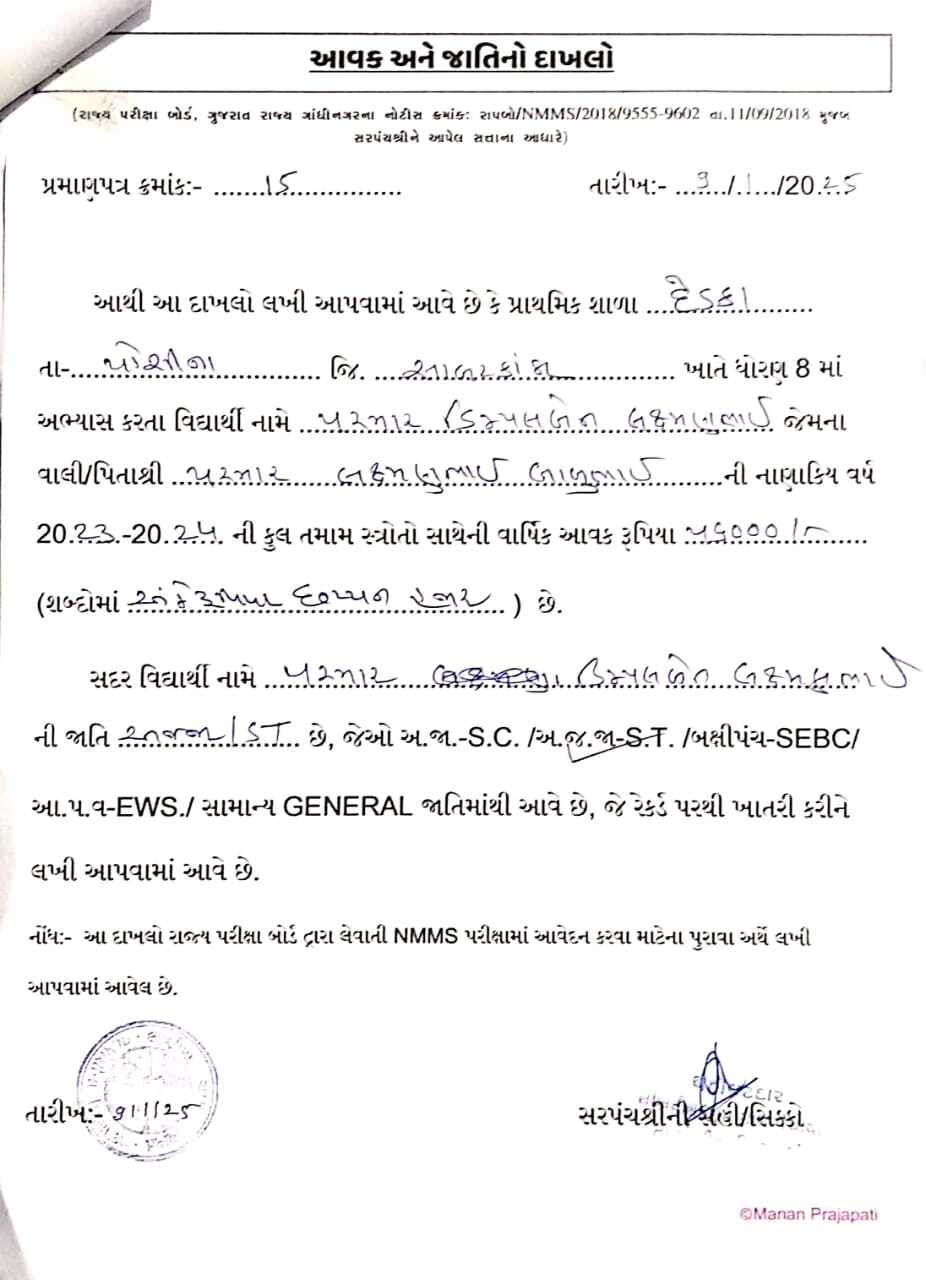 આવક અને જાતિનો દાખલો
(રાજ્ય પરીક્ષા બોર્ડ, ગુજરાત રાજ્ય ગાંધીનગરના નોટીસ ક્રમાંક: રાપબો/NMMS/2018/9555-9602 તા.11/09/2018 મુજબ
સરપંચશ્રીને આપેલ સત્તાના આધારે)
પ્રમાણપત્ર ક્રમાંક:- .......15............... તારીખ:- ...9.../.1.../20.25
આથી આ દાખલો લખી આપવામાં આવે છે કે પ્રાથમિક શાળા ...દૈડકા.........
તા-......પોશીના............... જિ. ...સાબરકાંઠા............... ખાતે ધોરણ 8 માં
અભ્યાસ કરતા વિદ્યાર્થી નામે ..પરમાર ડિમ્પલબેન લક્ષ્મણભાઈ જેમના
વાલી/પિતાશ્રી ..પરમાર લક્ષ્મણભાઈ બાબુભાઈ.........ની નાણાકિય વર્ષ
20.23.-20.24. ની કુલ તમામ સ્ત્રોતો સાથેની વાર્ષિક આવક રૂપિયા ૫૬૦૦૦/-.........
(શબ્દોમાં અંકે રૂપિયા છપ્પન હજાર ) છે.
સદર વિદ્યાર્થી નામે ..પરમાર ડિમ્પલબેન લક્ષ્મણભાઈ
ની જાતિ અ.જ.જા/ST છે, જેઓ અ.જા.-S.C. /અ.જ.જા-S.T. /બક્ષીપંચ-SEBC/
આ.પ.વ-EWS./ સામાન્ય GENERAL જાતિમાંથી આવે છે, જે રેકર્ડ પરથી ખાતરી કરીને
લખી આપવામાં આવે છે.
નોંધ:- આ દાખલો રાજ્ય પરીક્ષા બોર્ડ દ્વારા લેવાતી NMMS પરીક્ષામાં આવેદન કરવા માટેના પુરાવા અર્થે લખી
આપવામાં આવેલ છે.
તારીખ:- 9/1/25 સરપંચશ્રીની સહી/સિક્કો
©Manan Prajapati